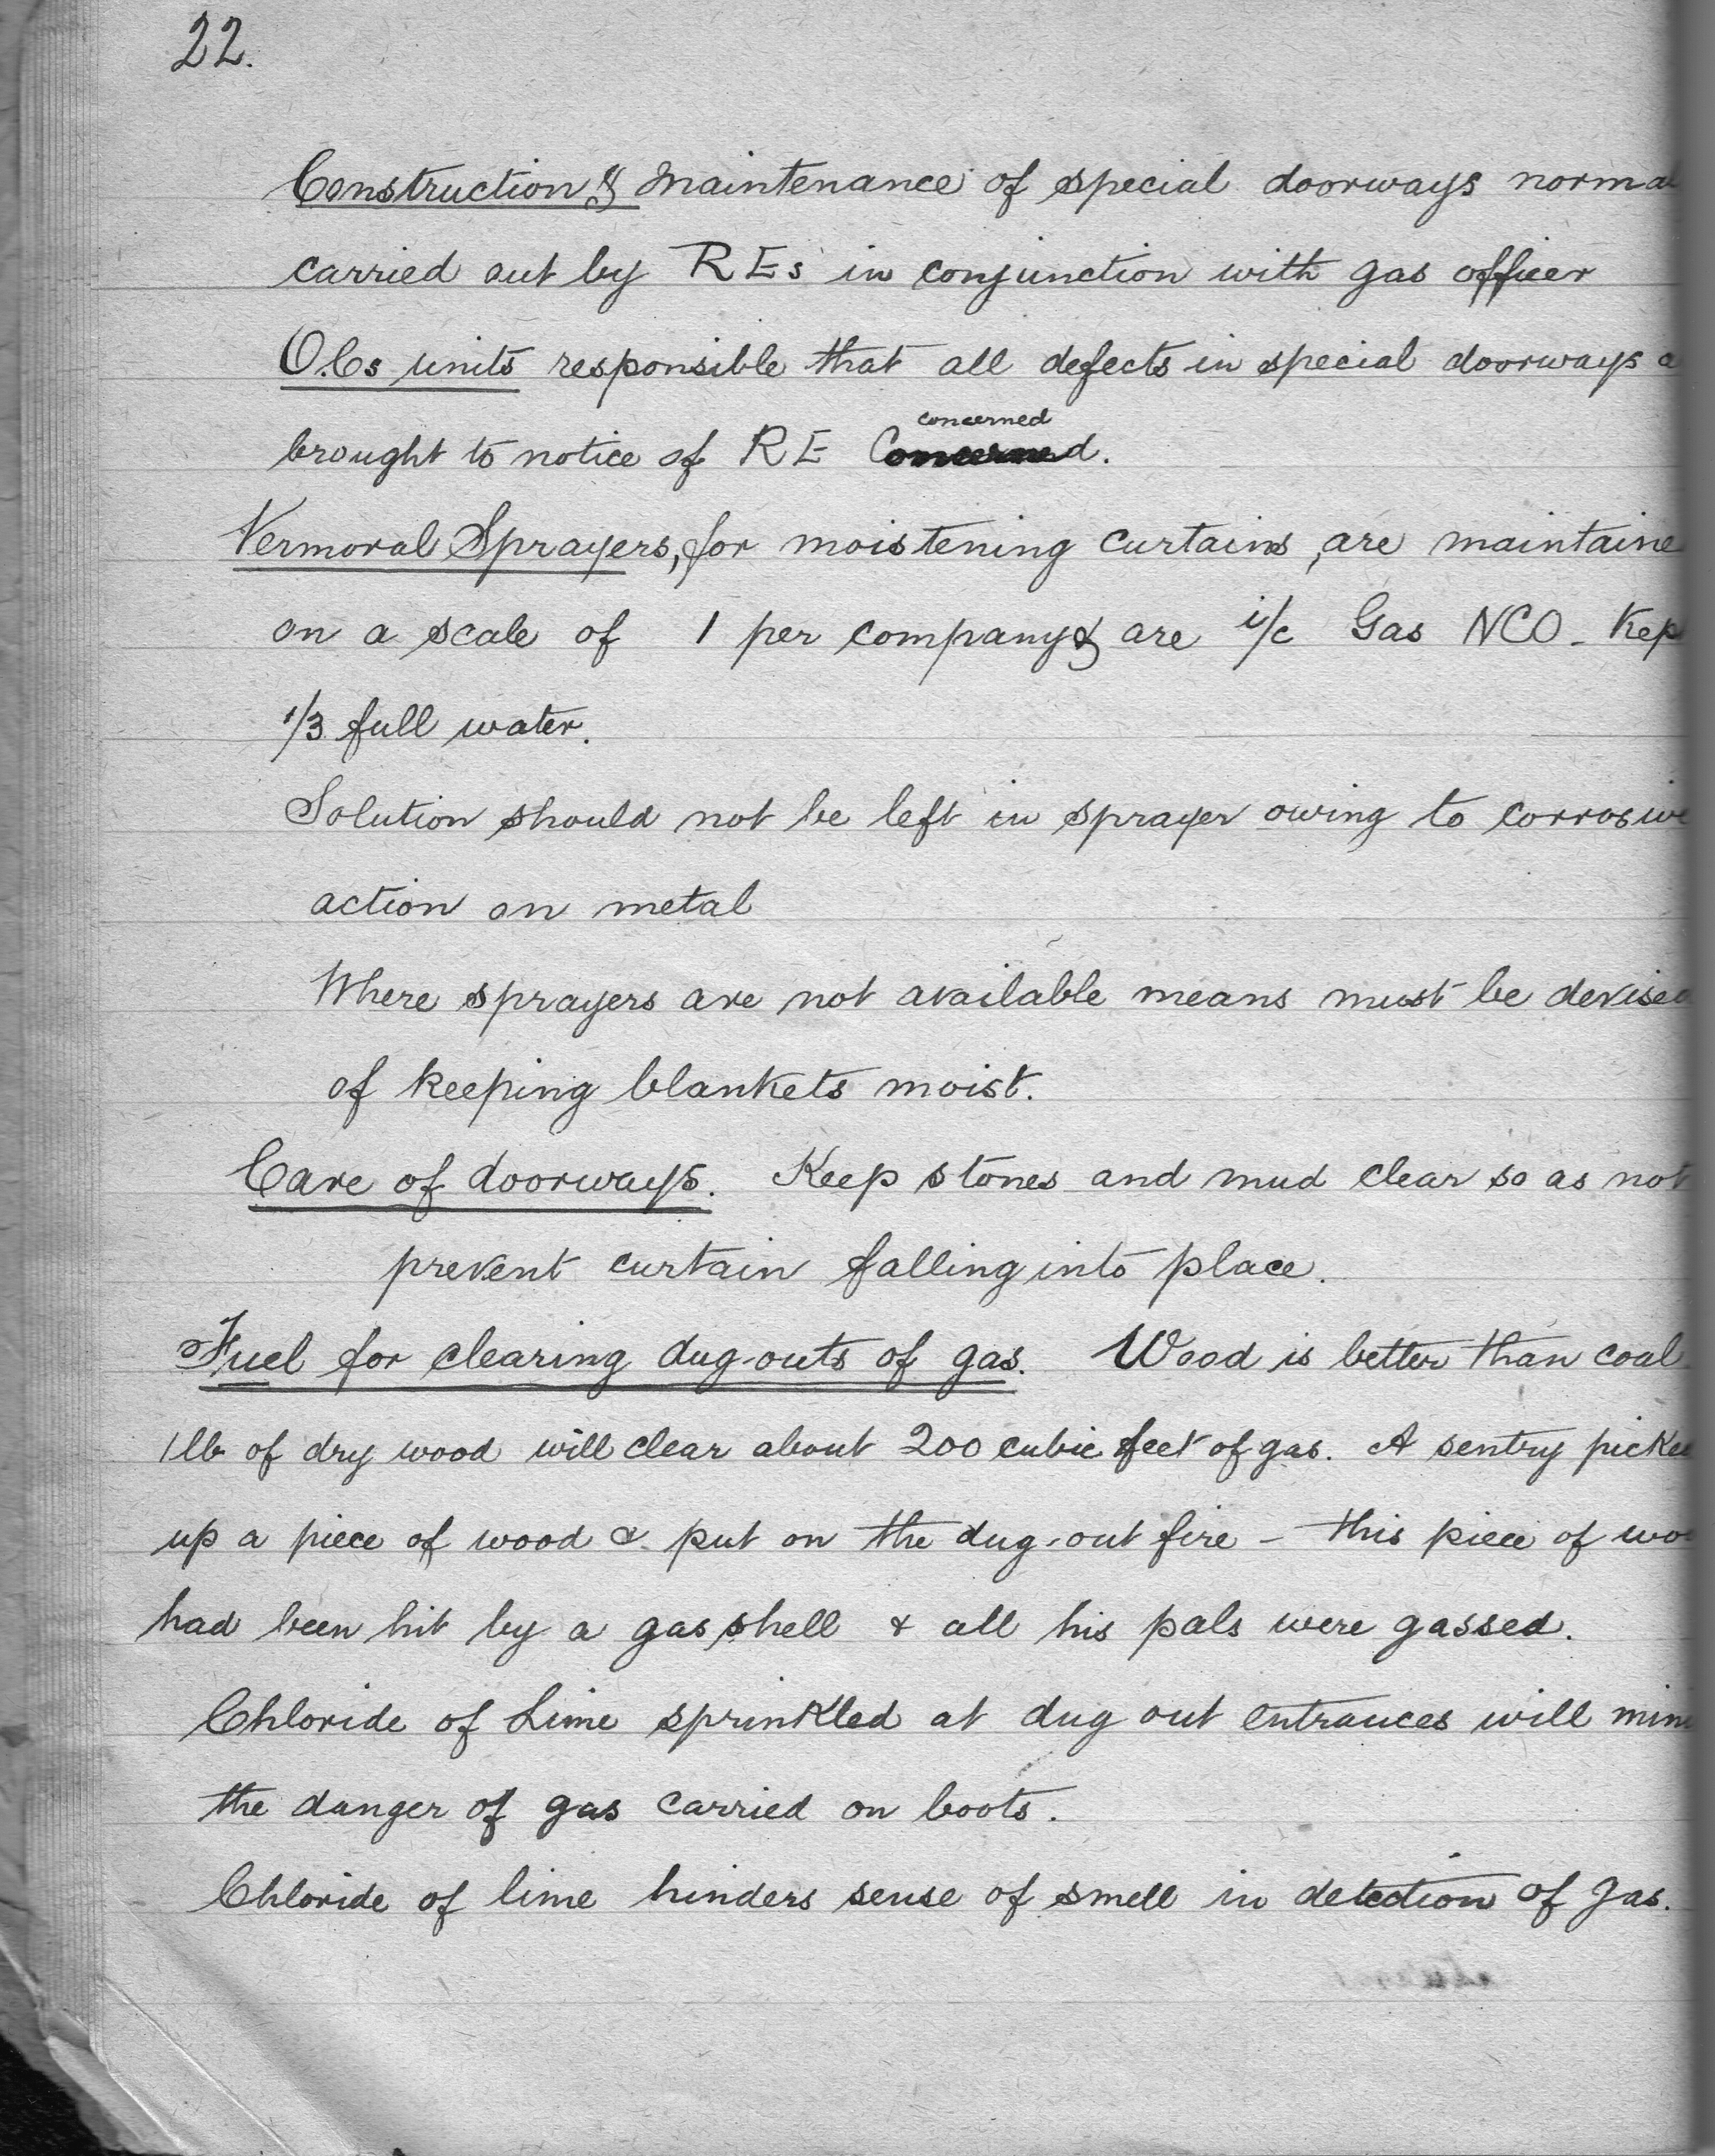 22.
Construction & Maintenance of special doorways norma
carried out by REs in conjunction with gas officer
O.Cs units responsible that all defects in special doorways a
concerned
brought to notice of RE Concerned.
Vermoral Sprayers, for moistening curtains, are maintaine
on a scale of 1 per company & are i/c Gas NCO - Kep
1/3 full water.
Solution should not be left in sprayer owing to corrosive
action on metal
Where sprayers are not available means must be devised
of keeping blankets moist.
Care of doorways. Keep stones and mud clear so as not
prevent curtain falling into place.
Fuel for clearing dug-outs of gas. Wood is better than coal
1 lb of dry wood will clear about 200 cubic feet of gas. A sentry picked
up a piece of wood & put on the dug-out fire - this piece of wo
had been hit by a gas shell & all his pals were gassed.
Chloride of Lime sprinkled at dug out entrances will mini
the danger of gas carried on boots.
Chloride of lime hinders sense of smell in detection of gas.